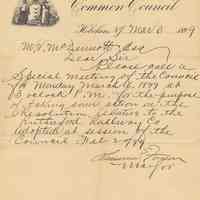 Common Council
Hoboken NJ Mar 3 1899
Mr. McDermott Esq
Dear Sir
Please call a
Special meeting of the Council
for Monday March 6, 1899 at
8 oclock P.M. for the purpose
of taking some action on the
Resolution relative to the
Rutherford Railway Co
adopted at session of the
Council Feb 1899
Mayor